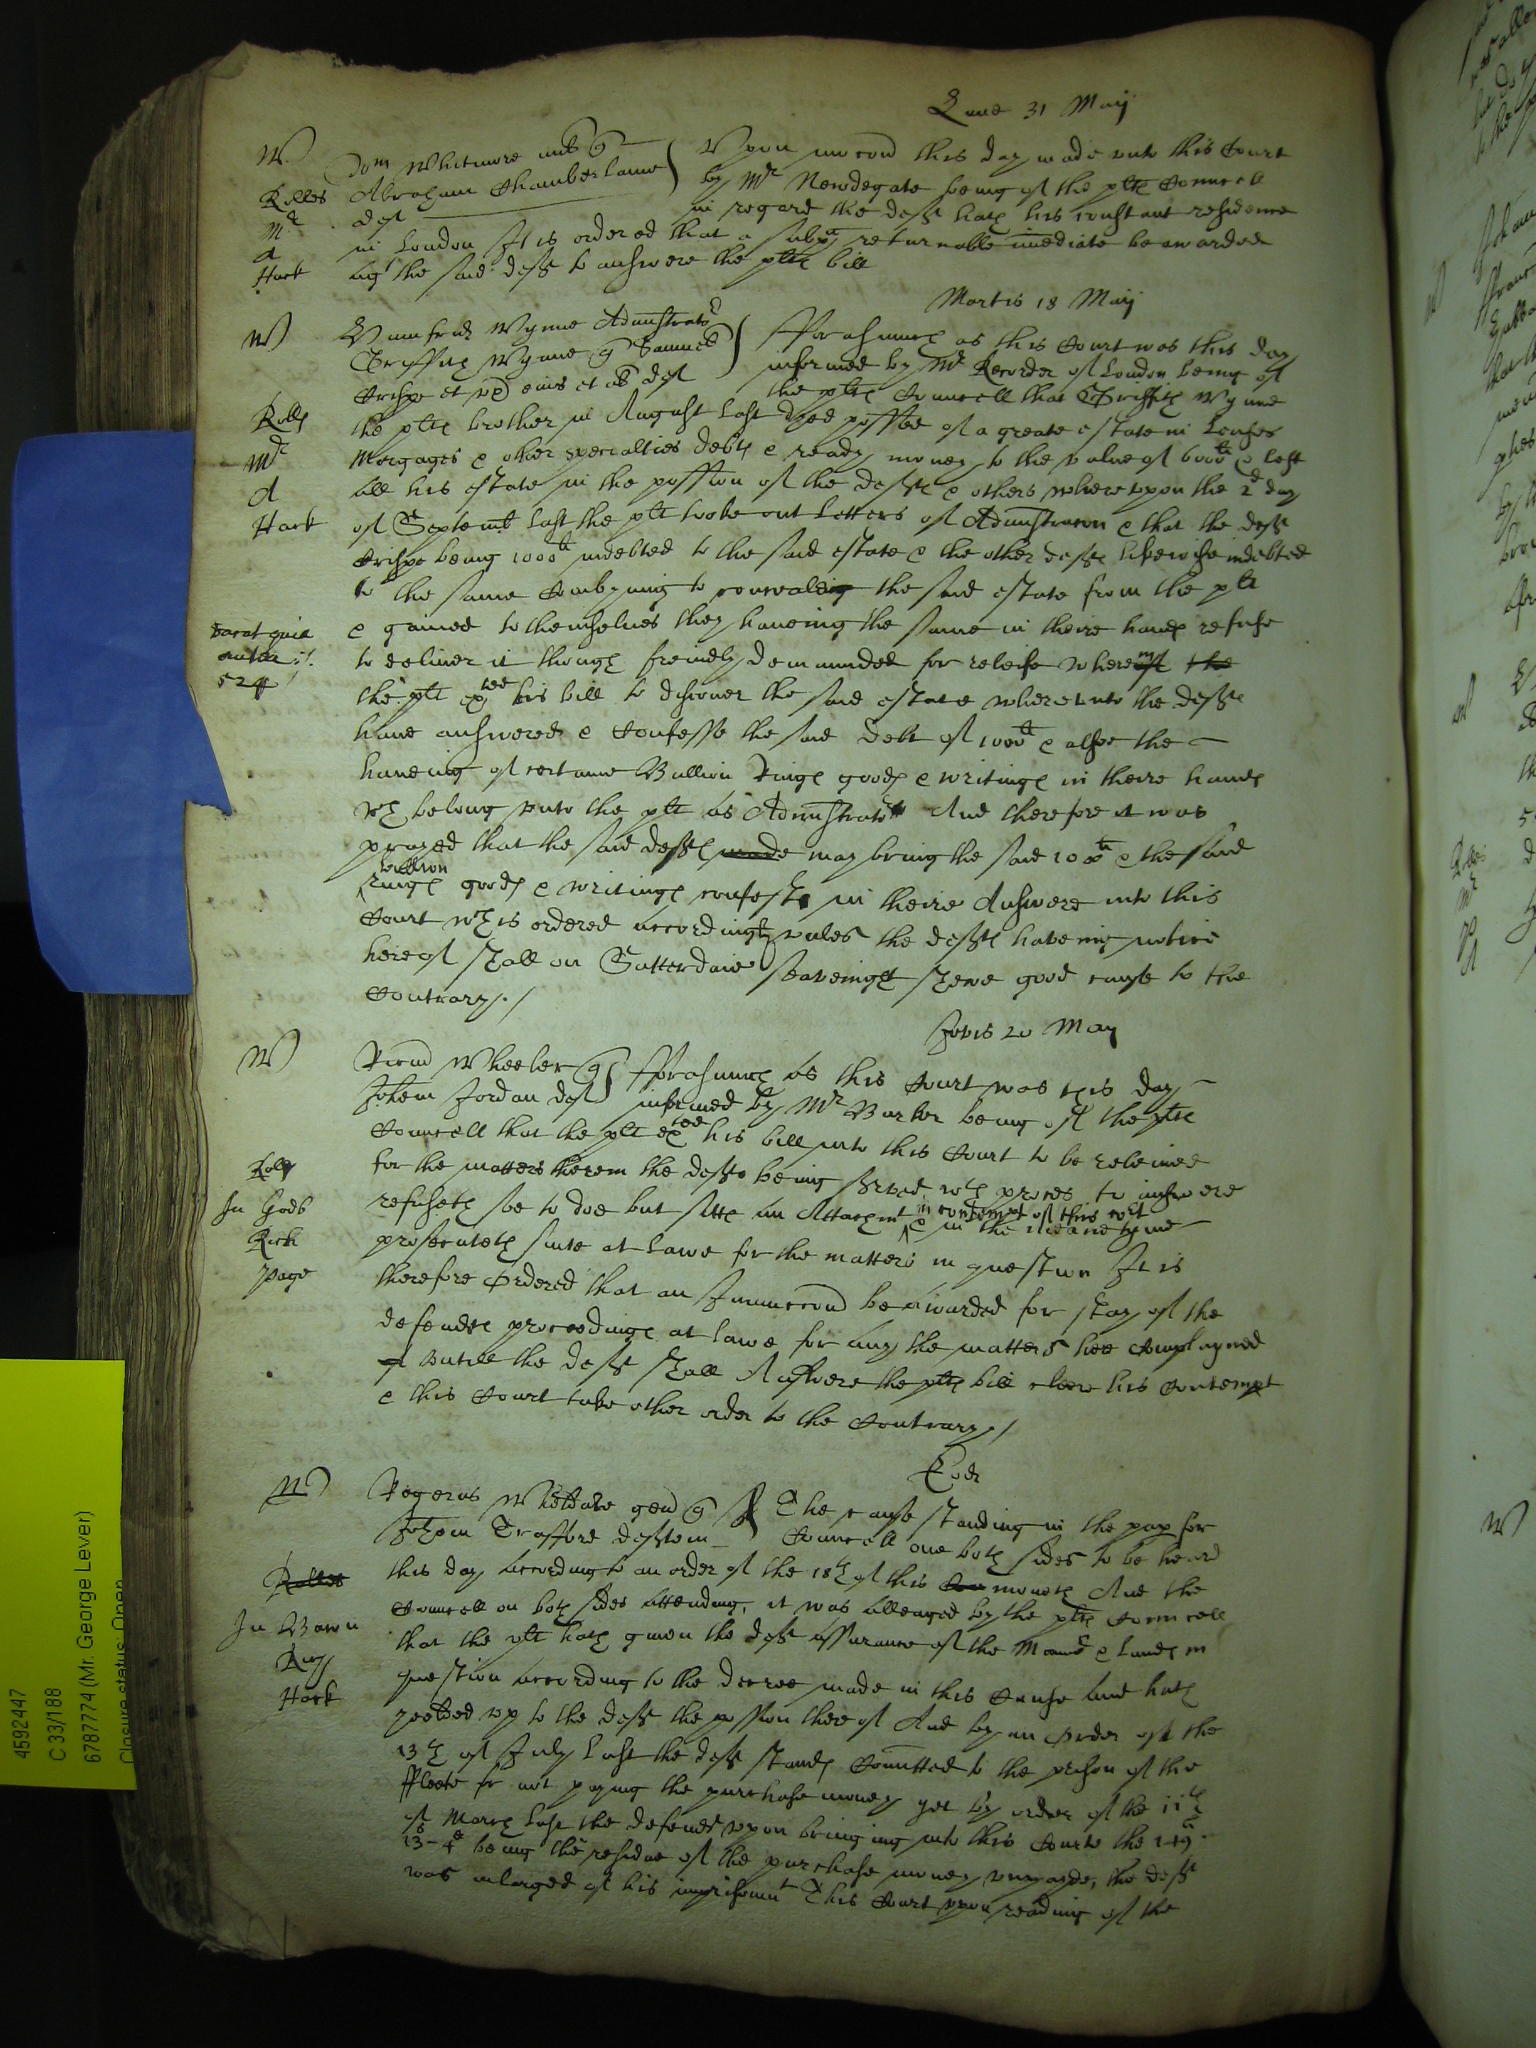 Lune 31 Maij
W Dom Whitmore
Rolles Abraham Chamberlaine Upon mocon this day made unto this Court
Mr def by Mr Newdegate being of the plts Councell
in regard the deft hath his constant residence
A in London It is ordered that a subpa returnable imediate be awarded
Hark agt the said deft to answere the plts bill
Martis 18 Maij
W Humfrid Wynne Administrator
Griffith Wynne Samuel fforasmuch as this Court was this day
Crispe et ux eius et al def informed by Mr Recorder of London being of
the plts Councell that Griffith Wynne
Rolls the plts brother in August last dyed possed of a greate estate in Leases
Mr Morgages & other specialties debts & ready money to the value of 6000li & left
A all his estate in the possion of the defts & others whereupon the 2d day
Hark of Septemb last the plt tooke out Letters of Administracon & that the deft
Crispe being 1000li indebted to the said estate & the other defts likewise indebted
to the same Combyning to conceale the said estate from the plt
& gained to themselves they haveing the same in theire hands refuse
to deliver it though freindly demanded for releife where the
the plt exted his bill to discover the said estate whereunto the defts
have answered & Confesse the said debt of 1000li & alsoe the
haveing of certaine Bullion Rings goods & writings in theire hands
wch belong unto the plt as Administrator And therefore it was
prayed that the said defts made may bring the said 1000li & the said
bullion
rings goods & writings confest in theire Answere into this
Court wch is ordered accordingly unles the defts haveing notice
hereof shall on Satterdaie seavenight shewe good cause to the
Contrary./
Jovis 20 May
W Ricard Wheeler fforasmuch as this Court was this day
Johem Jordan def informed by Mr Barker being of the plts
Councell that the plt exted his bill into this Court to be releived
Rolls for the matters therein the deft being served wth proces to answere
in contempt of this cort
In Gods refuseth soe to doe but sitts an Attachmt & in the meane tyme
Rich prosecuteth suite at Lawe for the matters in question It is
Page therefore Ordered that an Iniunccon be awarded for stay of the
defendts proceedings at Lawe for any the matters here Complayned
of untill the deft shall Answere the plts bill cleere his Contempt
& this Court take other order to the Contrary /
Eodm
W Rogerus gen The cause standing in the pap for
Johem Trafford deftem Councell one both sides to be heard
Rolles this day according to an order of the 18th of this moneth And the
Councell on both sides attending, it was alleaged by the plts Councell
that the plt hath given the deft assurance of the Mannor & lands in
question according to the decree made in this Cause and hath
Hark yeelded up to the deft the possion thereof And by an Order of the
13th of July last the deft stands Comitted to the prison of the
ffleete for not paying the purchase money yet by order of the 11th
of March last the defendt upon bringing into this Courte the
13s-4d being the residue of the purchase money unpayde, the deft
was inlarged of his imprisonmt This Court upon reading of the
4592447
C 33/188
6787774 (Mr. George Lever)
Closure status: Open